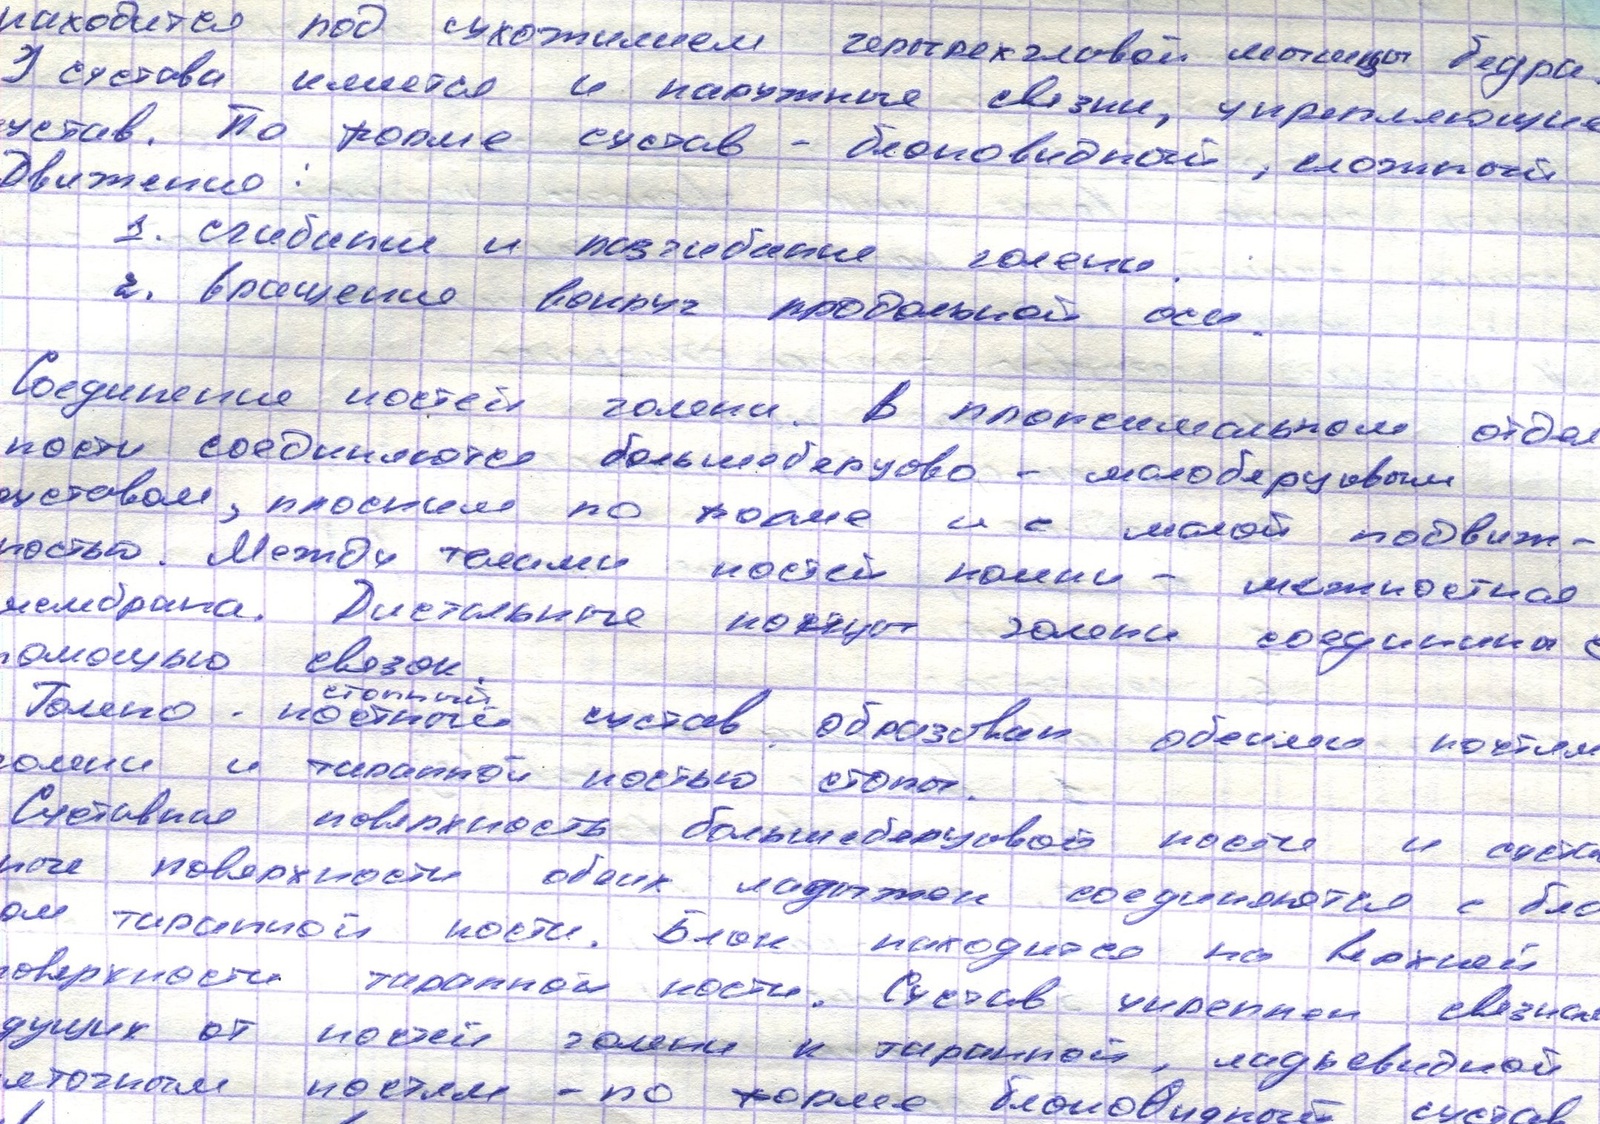 находится под сухожилием четырехглавой мышцы бедра.
У сустава имеется и наружные связки, укрепляющие
сустав. По форме сустав - блоковидный, сложный
Движение:
1. сгибание и разгибание голени.
2. вращение вокруг продольной оси.
Соединение костей голени. В проксимальном отделе
кости соединяются большеберцово - малоберцовым
суставом, плоским по форме и с малой подвиж-
ностью. Между телами костей голени - межкостная
мембрана. Дистальные концы голени соединены с
помощью связок.
стопный
Голено - костный сустав образован обеими костями
голени и таранной костью стопы.
Суставная поверхность большеберцовой кости и суста
ные поверхности обеих лодыжек соединяются с бло
ом таранной кости. Блок находится на верхней
поверхности таранной кости. Сустав укреплен связкам
дущих от костей голени к таранной, ладьевидной
яточным костям - по форме блоковидный сустав